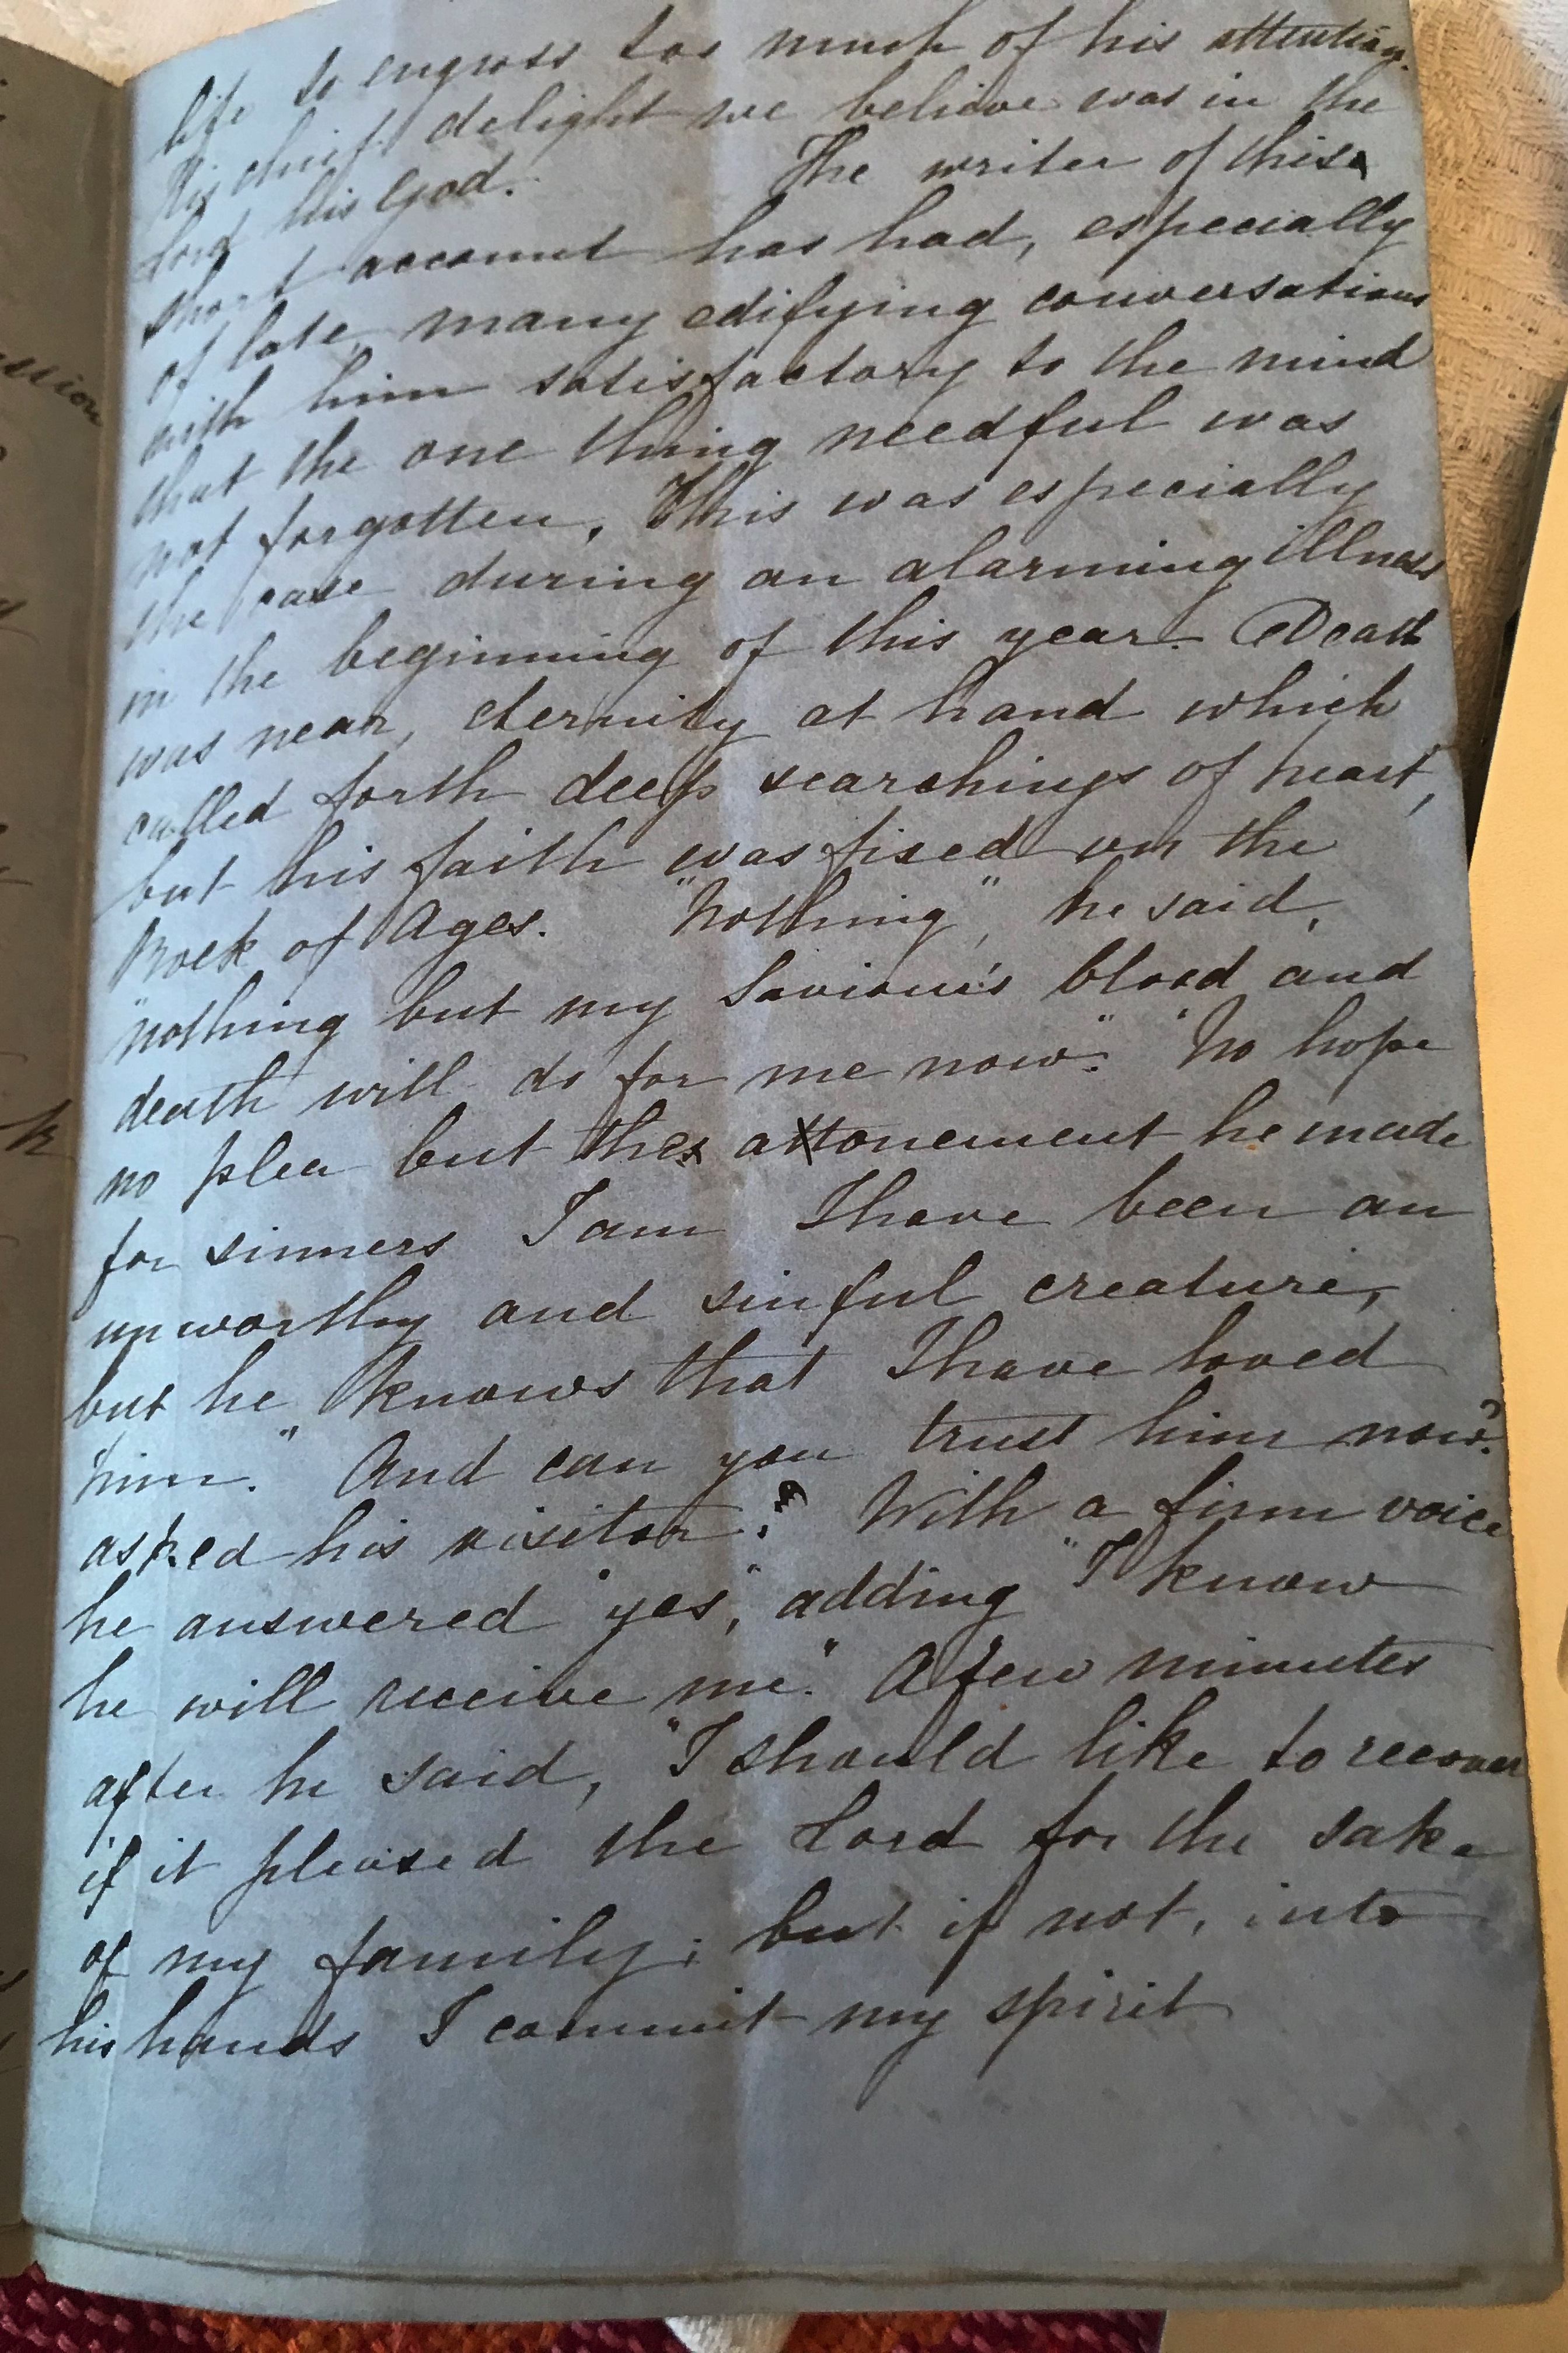 life to engross too much of his attention.
His chief delight we believe was in the
Lord his God. The writer of this
short account has had, especially
of late, many edifying conversations
with him satisfactory to the mind
that the one thing needful was
not forgotten. This was especially
the case during an alarming illness
in the beginning of this year. Death
was near, eternity at hand which
called forth deep searchings of heart,
but his faith was fixed on the
Rock of Ages. "Nothing", he said,
"nothing but my Saviour's blood and
death will do for me now." "No hope
no plea but the attonement he made
for sinners I am I have been an
unworthy and sinful creature,
but he knows that I have loved
him." And can you trust him now?
asked his visitor? With a firm voice
he answered "yes," adding "I know
he will receive me." A few minutes
after he said, "I should like to recover
if it pleased the Lord for the sake
of my family; but if not, into
his hands I commit my spirit